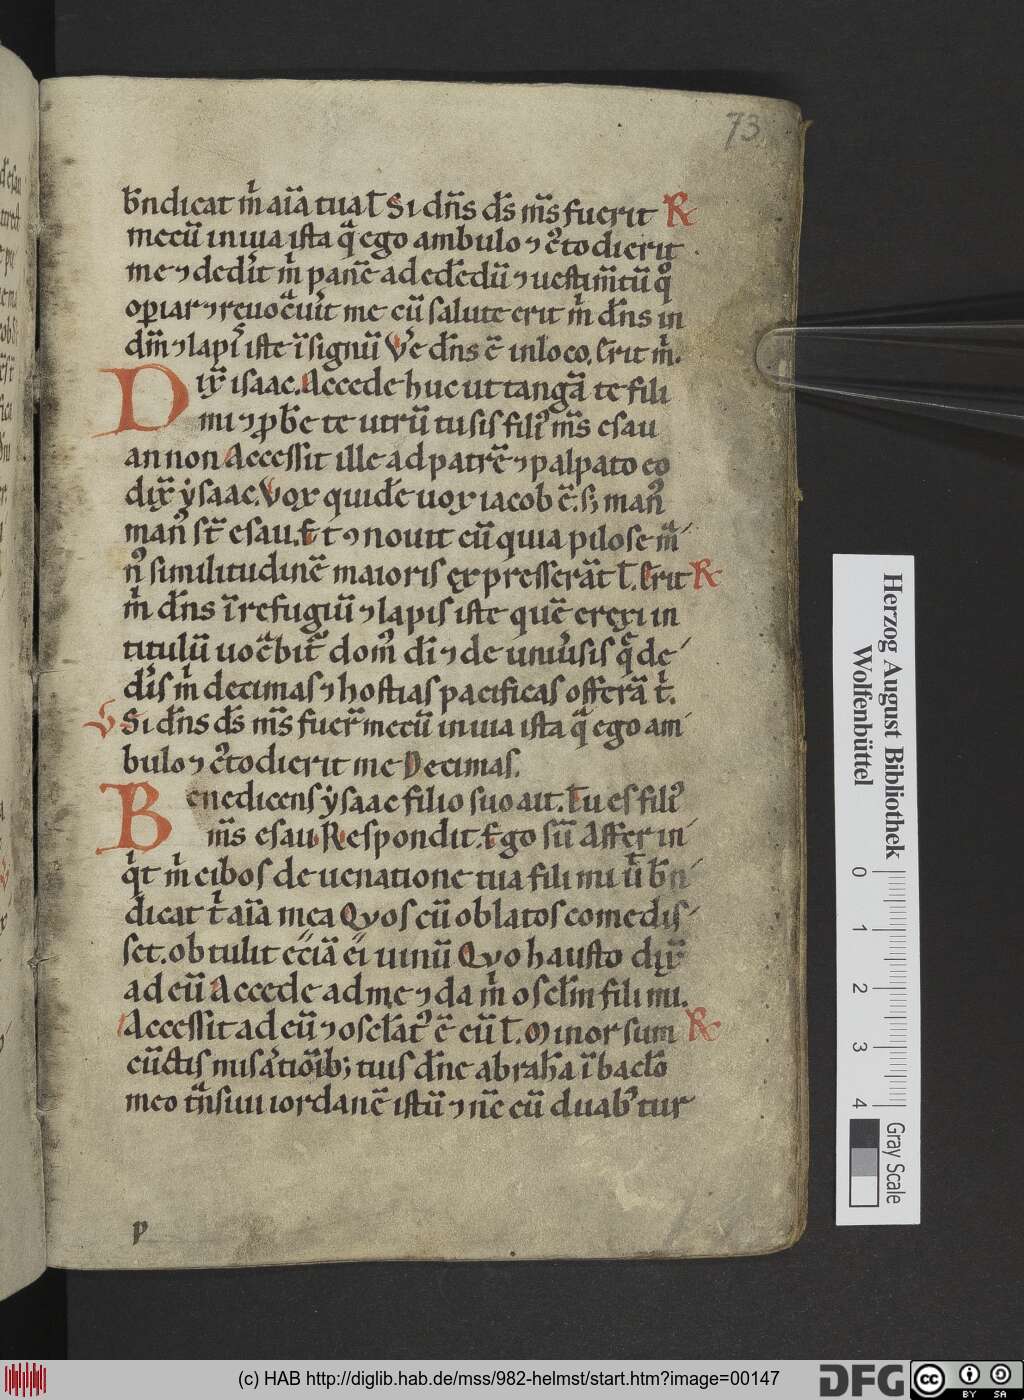 73
bn̄dicat m̍ aīa tua t̄ Si dn̄s ds̄ ms̄ fuerit R̸
mecū in uia ista q̄ ego ambulo ⁊ c̾todierit
me ⁊ dederit m̍ panē ad edēdū ⁊ uestim̄tū q̊
opiar ⁊ reuocͣuit me cū salute erit m̍ dn̄s in
dm̄ ⁊ lapis iste ī signū Ve dn̄s ē in loco. Erit m̍.
Dix̄ isaac. Accede huc ut tangā te fili
mi ⁊ ꝓbē te utrū tu sis fili᾽ ms̄ esau
an non Accessit ille ad patrē ⁊ palpato eo
dix̄ ẏsaac. Vox quidē uox iacob ē. sꝫ man᾽
man᾽ st̄ esau. Et ⁊ nouit eū quia pilose m̄
n᾽ similitudinē maioris expresserāt t̄. Erit R̸
m̍ dn̄s ī refugiū ⁊ lapis iste quē erexi in
titulū uocͣbit᾽ dom᾽ dī ⁊ de uniuersis q̄ de
deris m̍ decimas ⁊ hostias pacificas offerā t̍.
V Si dn̄s ds̄ ms̄ fuer̄ mecū in uia ista q̄ ego am
bulo ⁊ c̾todierit me Decimas.
Benedicens ẏsaac filio suo ait. Tu es fili᾽
ms̄ esau Respondit. Ego sū Affer in
q̍t m̍ cibos de uenatione tua fili mi ut bn̄
dicat t̍ aīa mea Quos cū oblatos comedis
set. obtulit ecīā ei uinū Quo hausto dix̄
ad eū Accede ad me ⁊ da m̍ osclm̄ fili mi.
Accessit ad eū ⁊ osclat᾽ ē eū t̄. Minor sum R̸
cūctis miseratiōibꝫ tuis dn̄e abrahā ī baclo
meo tn̄siui iordanē istū ⁊ nc̄ cū duab᾽ tur
p
Herzog August Bibliothek
Wolfenbüttel
0 1 2 3 4
Gray Scale
(c) HAB http://diglib.hab.de/mss/982-helmst/start.htm?image=00147
DFG
cc BY SA